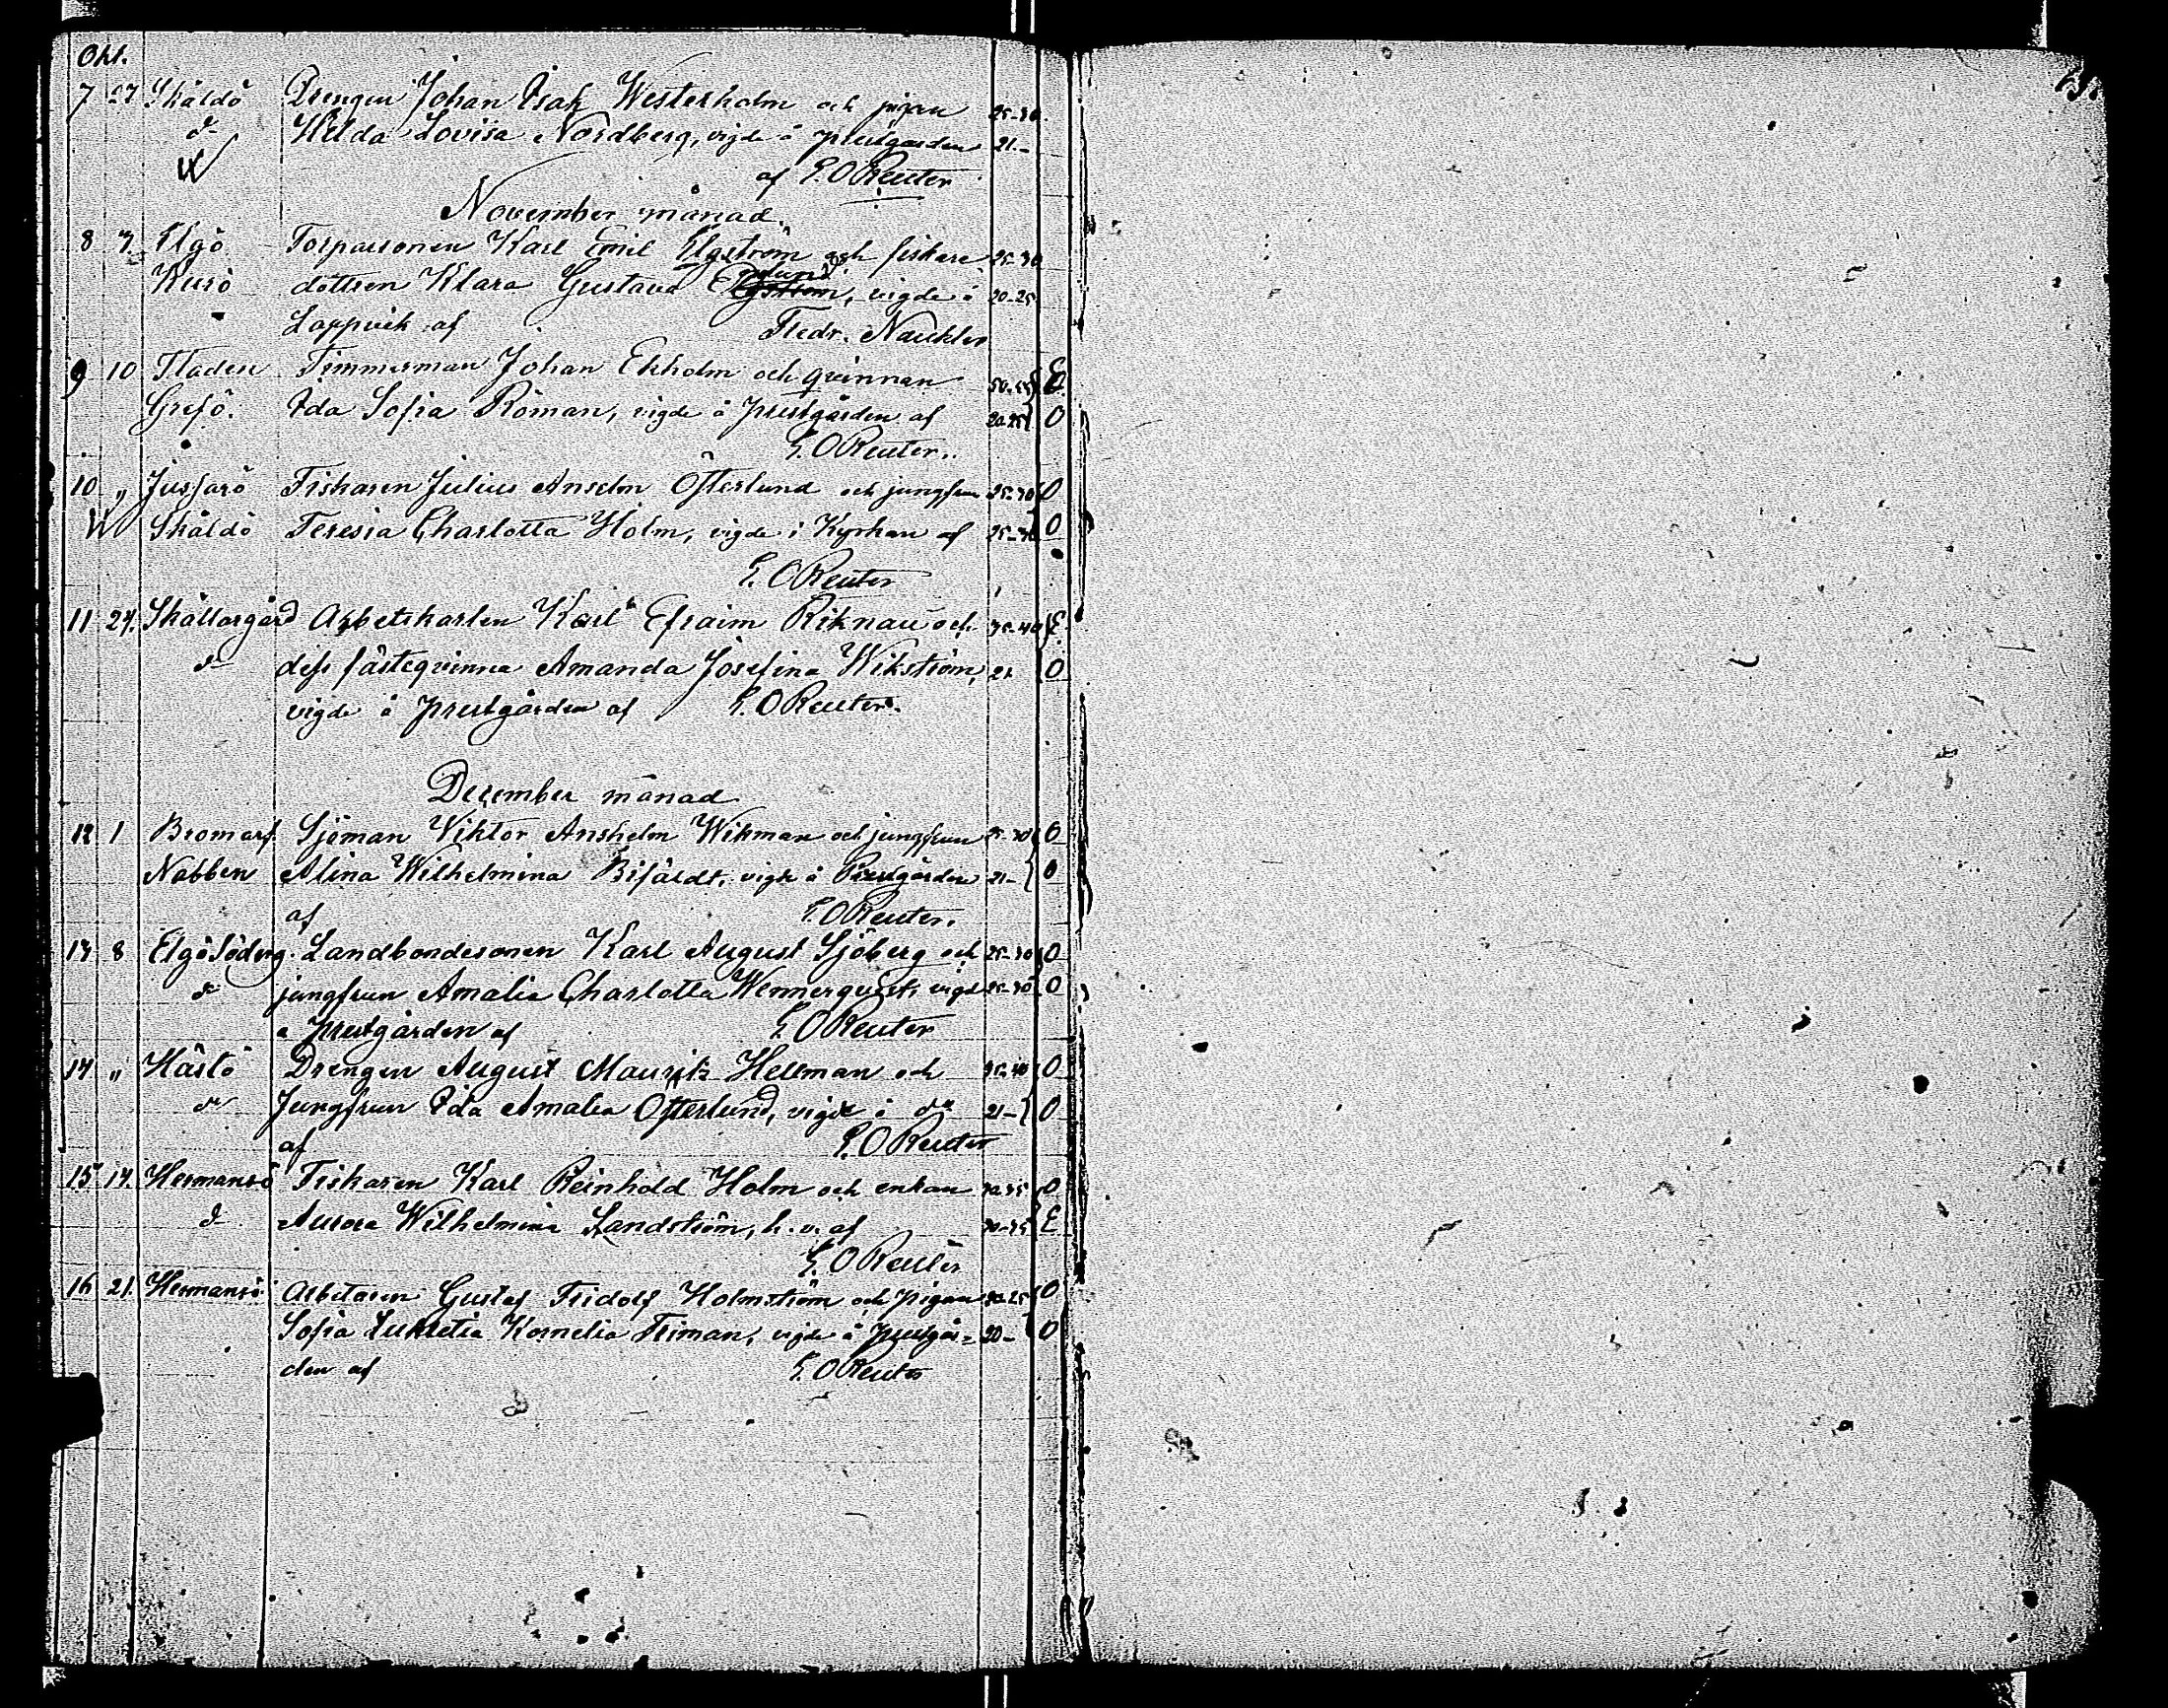 Okt.
7 27 Skåldö Drengen Johan Isak Westerholm och pigan 25-30.
d:o Hilda Lovisa Nordberg, vigde å prestgården 21-
af E. O Reuter
November månad.
8 3. Elgö Torparsonen Karl Emil Elgström och fiskare 25-30
Kusö dottren Klara Gustava vigde i 20-25
Lappvik af Fredr. Nauckler
9 10 Fladen Timmerman Johan Ekholm och qvinnan 50-55 E
Grefö. Ida Sofia Röman, vigde å prestgården af 20-25 O
E. O Reuter.
10 " Jussarö Fiskaren Julius Anselm Österlund och jungfrun 25-30 O
Skåldö Teresia Charlotta Holm, vigde i Kyrkan af 25-30 O
E. O Reuter
11 24. Skållargård Arbetskarlen Karl Efraim Riknau och 35-40 E
d:o dess fästeqvinna Amanda Josefina Wikström, 21. O
vigde å prestgården af E. O Reuter.
December månad
12 1 Bromarf Sjöman Viktor Anshelm Wikman och jungfrun 25-30 O
Nabben Alina Wilhelmina Bifäldt, vigde å Prestgården 21- O
af E. O Reuter.
13 8 Elgö Söderg. Landbondesonen Karl August Sjöberg och 25-30 O
d:o jungfrun Amalia Charlotta Wennerqvist, vigde 25-30 O
å prestgården af E. O Reuter
14 " Hästö Drengen August Mauritz Hellman och 35-40 O
d:o Jungfrun Ida Amalia Österlund, vigde å d:o 21- O
af E. O Reuter
15 14. Hermansö Fiskaren Karl Reinhold Holm och enkan 30-35 O
d:o Aurora Wilhelmina Sandström, h. v. af 30-35 E
E. O Reuter
16 21. Hermansö Arbetaren Gustaf Fridolf Holmström och pigan 20-25 O
Sofia Lukretia Kornelia Friman, vigde å prestgår- 20- O
den af E. O Reuter